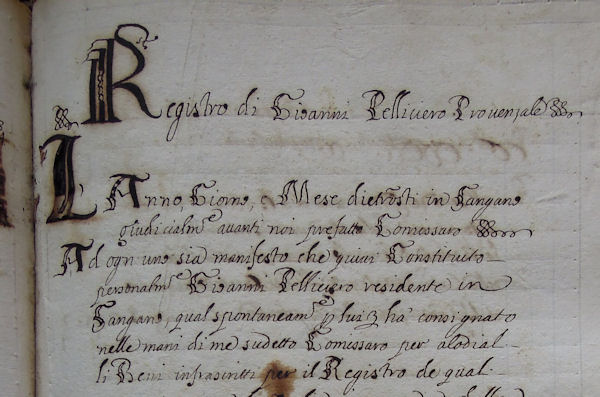 Registro di Gioanni Pellivero Provenzale
L'Anno, Giorno, e Mese dietrosti in Sangano
giudicialmᵉ avanti noi prefatto Comessaro
Ad ogn uno sia manifesto che quivi Constituito
personalmᵉ Gioanni Pellivero residente in
Sangano, qual spontaneamᵉ p lui ha consignato
nelle mani di me sudetto Comessaro per alodial
li Beni infrascritti per il Registro de qual